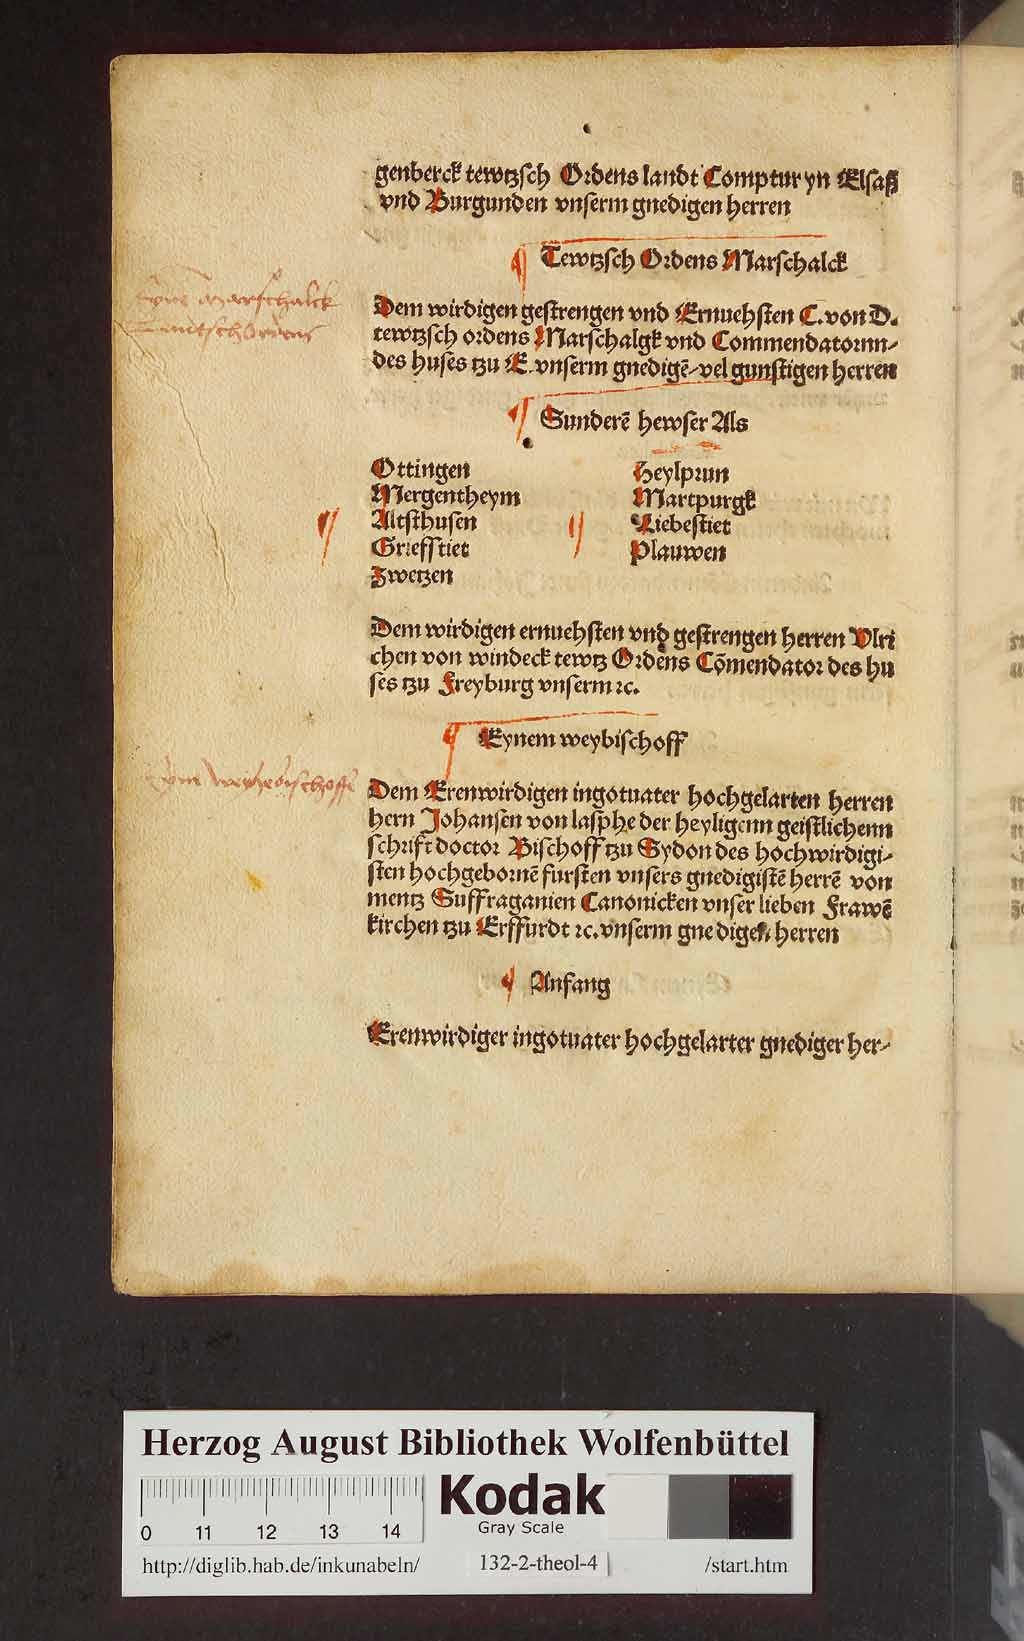 genberck tewtzsch Ordens landt Comptur yn Elsaß
vnd Burgunden vnserm gnedigen herren
Tewtzsch Ordens Marschalck
Marschalck
Dem wirdigen gestrengen vnd Ernuehsten C. von D.
tewtzsch ordens Marschalgk vnd Commendatornn-
des huses tzu E. vnserm gnedigē-vel gunstigen herren
Sunderē hewser Als
Ottingen
Mergentheym
Altsthusen
Griefstiet
Zwetzen
Heylprun
Martpurgk
Liebestiet
Plauwen
Dem wirdigen ernuehsten vnd gestrengen herren Vlri
chen von windeck tewtz Ordens Cōmendator des hu
ses tzu Freyburg vnserm ꝛc.
Eynem weybischoff
Dem Erenwirdigen ingotuater hochgelarten herren
hern Johansen von lasphe der heyligenn geistlichenn
schrift doctor Bischoff tzu Sydon des hochwirdigi-
sten hochgebornē fursten vnsers gnedigistē herrē von
mentz Suffraganien Canonicken vnser lieben Frawē
kirchen tzu Erffurdt ꝛc. vnserm gnedigen herren
Anfang
Erenwirdiger ingotuater hochgelarter gnediger her-
Herzog August Bibliothek Wolfenbüttel
Kodak
Gray Scale
0 11 12 13 14
http://diglib.hab.de/inkunabeln/ 132-2-theol-4 /start.htm